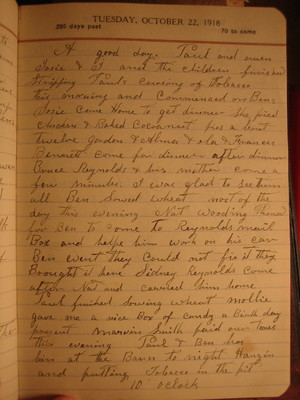 TUESDAY, OCTOBER 22, 1918
295 days past 70 to come
A good day. Paul and Owen
Josie & I and the children finished
Stripping Pauls Curing of Tobacco
this morning and Commenced on Bens
Josie Come Home to get dinner She fixed
Chicken & Baked Cocoanut pies a bout
twelve Gorden & Alma & Ola & Frances
Bennett Come for dinner after dinner
Bruce Reynolds & his mother come a
few minutes. I was glad to see them
all Ben Sowed wheat most of the
day this evening Nat Wooding phoned
for Ben to come to Reynolds mail
Box and helpe him work on his car
Ben went they Could not fix it they
Brought it here Sidney Reynolds Come
after Nat and carried him home
Paul finished Sowing wheat Mollie
gave me a nice Box of candy a Birth day
present Marvin Smith paid our Taxes
this evening Paul & Ben has
bin at the Barn to night Hanging
and putting Tobacco in the pit
10 oclock